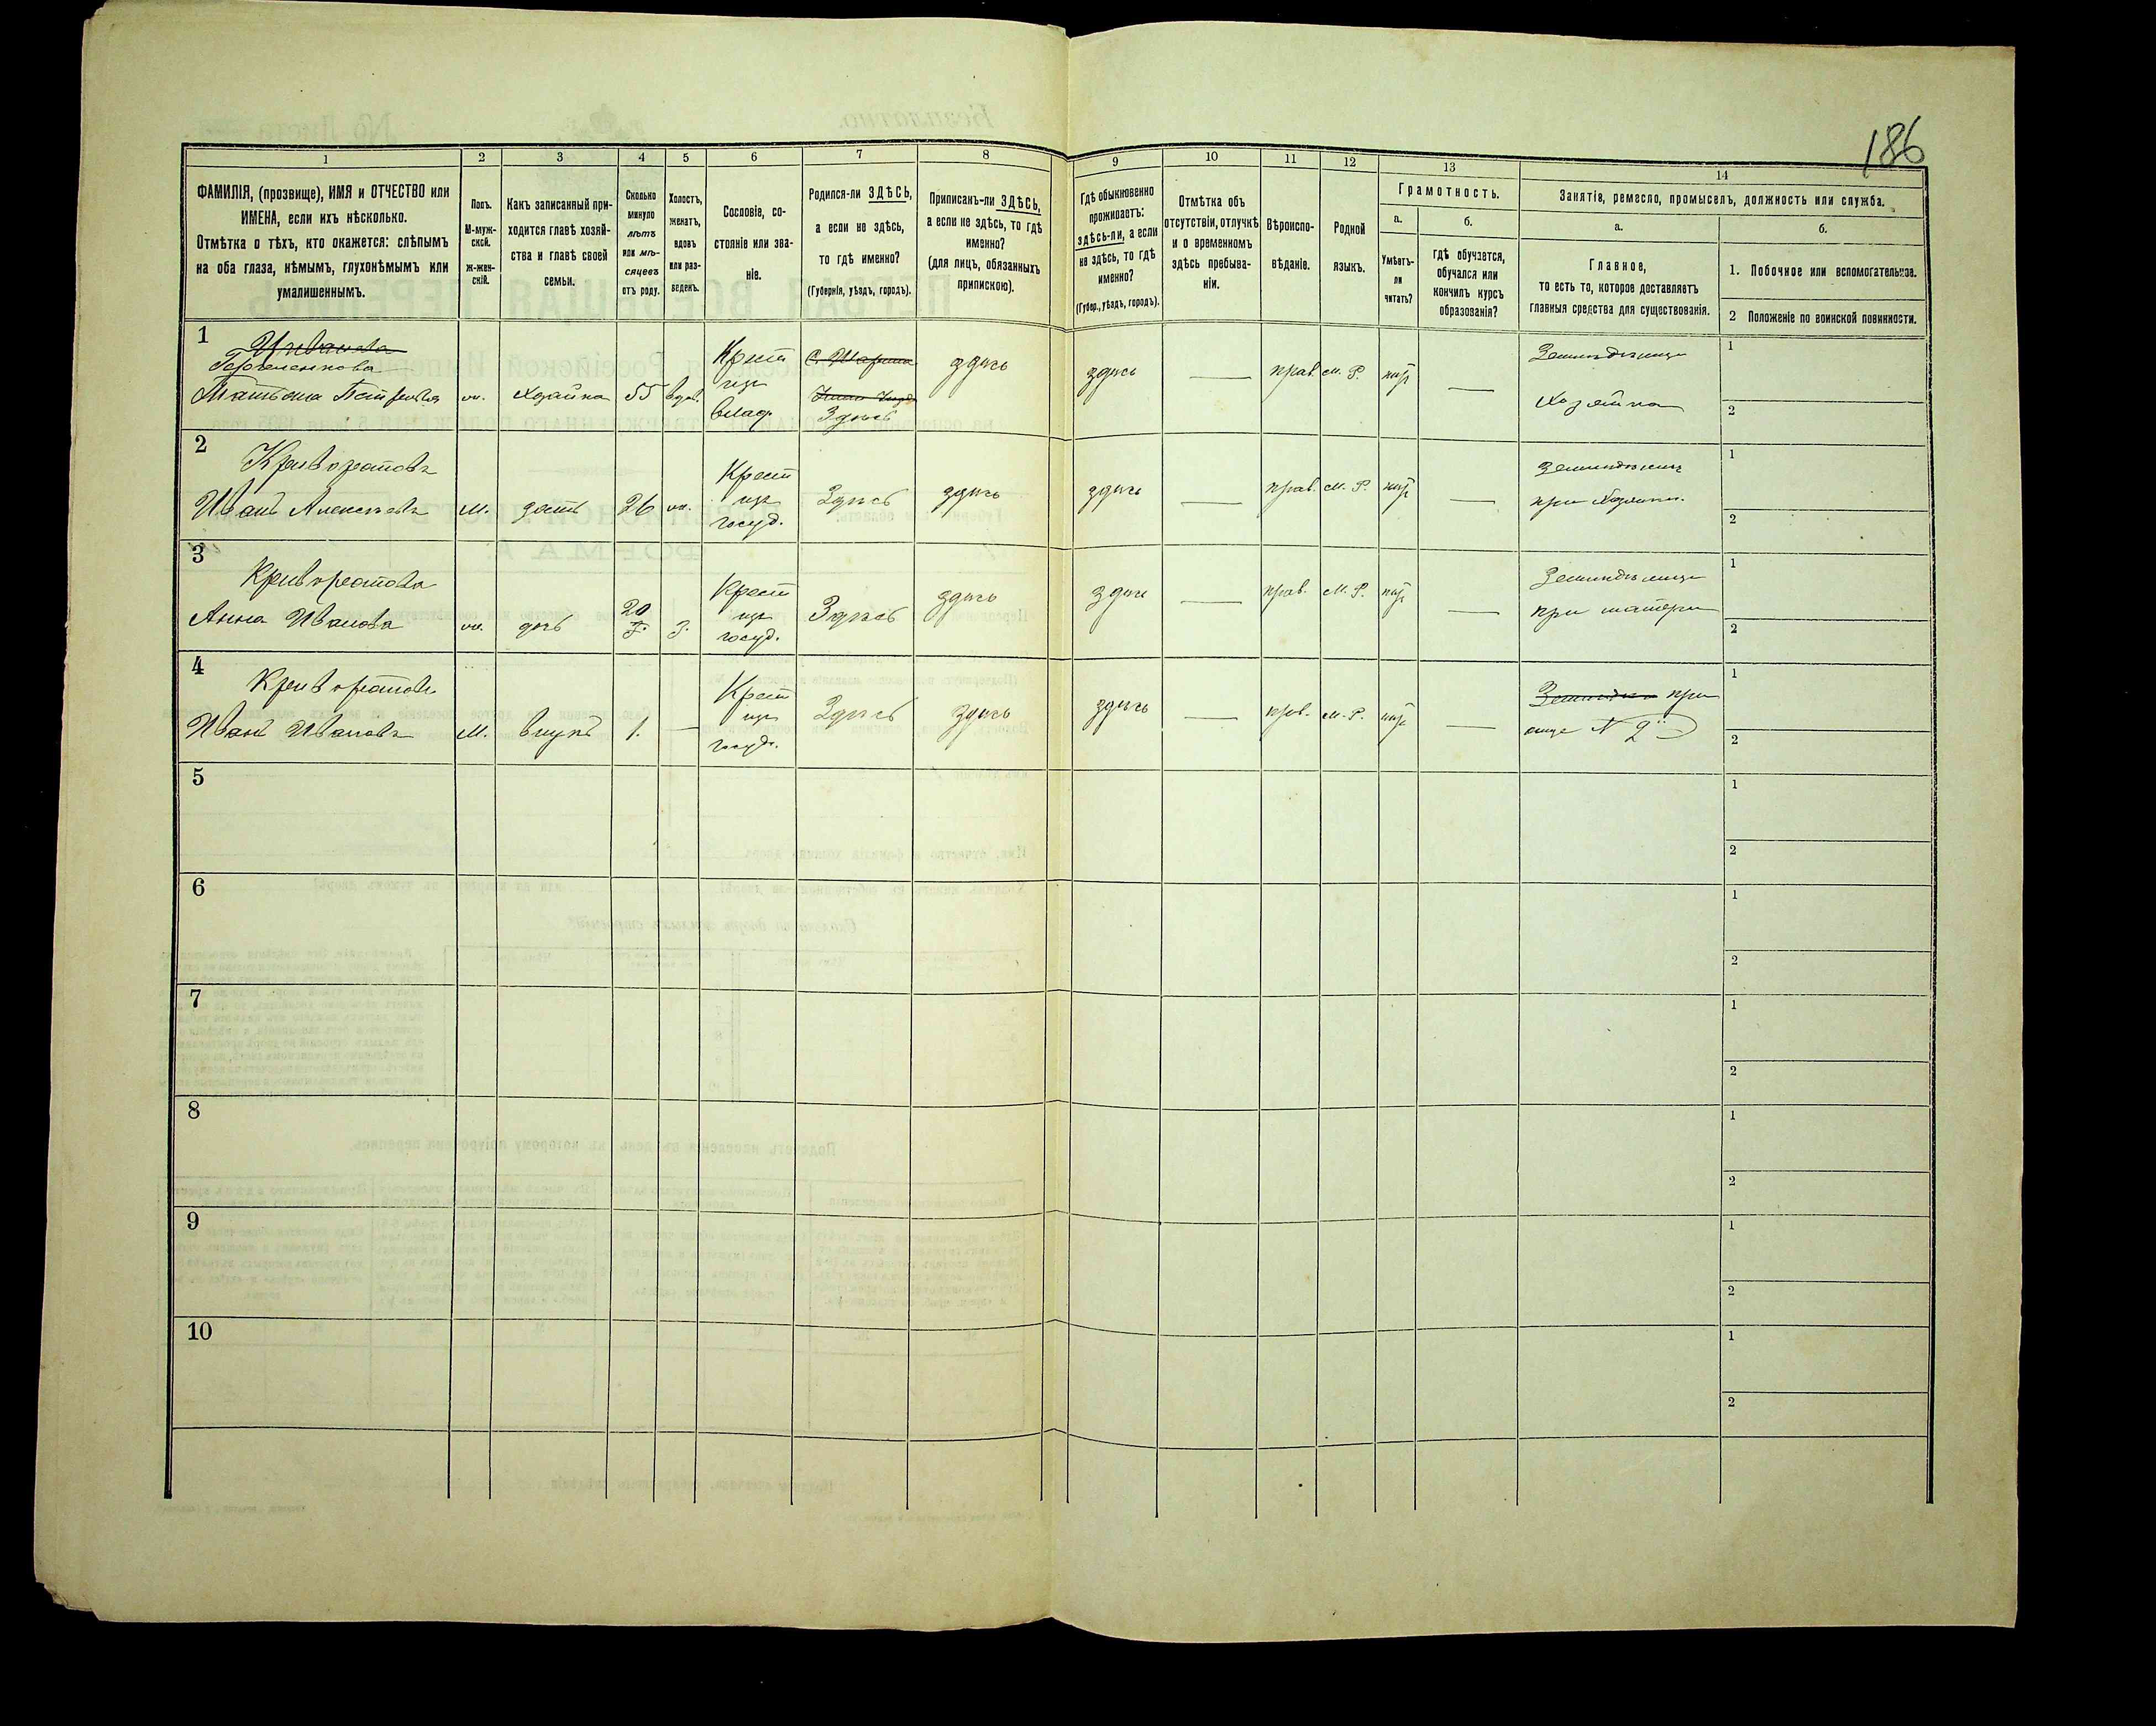 186
1
2
3
4
5
6
7
8
9
10
11
12
13
14
ФАМИЛІЯ, (прозвище), ИМЯ и ОТЧЕСТВО или
ИМЕНА, если ихъ нѣсколько.
Отмѣтка о тѣхъ, кто окажется: слѣпымъ
на оба глаза, нѣмымъ, глухонѣмымъ или
умалишеннымъ.
Полъ.
М-муж-
ской.
ж-жен-
скій.
Какъ записанный при-
ходится главѣ хозяй-
ства и главѣ своей
семьи.
Сколько
минуло
лѣтъ
или мѣ-
сяцевъ
отъ роду.
Холостъ,
женатъ,
вдовъ
или раз-
веденъ.
Сословіе, со-
стояніе или зва-
ніе.
Родился-ли ЗДѢСЬ,
а если не здѣсь,
то гдѣ именно?
(Губернія, уѣздъ, городъ).
Приписанъ-ли ЗДѢСЬ,
а если не здѣсь, то гдѣ
именно?
(для лицъ, обязанныхъ
припискою).
Гдѣ обыкновенно
проживаетъ:
здѣсь-ли, а если
не здѣсь, то гдѣ
именно?
(Губер., уѣздъ, городъ).
Отмѣтка объ
отсутствіи, отлучкѣ
и о временномъ
здѣсь пребыва-
ніи.
Вѣроиспо-
вѣданіе.
Родной
языкъ.
Грамотность.
а.
Умѣетъ-
ли
читать?
б.
Гдѣ обучается,
обучался или
кончилъ курсъ
образованія?
Занятія, ремесло, промыселъ, должность или служба.
а.
Главное,
то есть то, которое доставляетъ
главныя средства для существованія.
б.
1. Побочное или вспомогательное.
2 Положеніе по воинской повинности.
1
Матьона
ж.
Хозяйка
55
вдов.
Крест
изъ
влад.
Здѣсь
здѣсь
здѣсь
—
прав.
М. Р.
—
Земледѣлица
Хозяйка
1
2
2
Криворотовъ
Иванъ Алексѣевъ
М.
зять
26
ж.
Крест
изъ
госуд.
Здѣсь
здѣсь
здѣсь
—
прав.
М. Р.
—
при Хозяйк.
1
2
3
Криворотова
Анна Иванова
ж.
дочь
20
З.
Крест
изъ
госуд.
Здѣсь
здѣсь
здѣсь
—
прав.
М. Р.
—
Земледѣлица
при матери
1
2
4
Криворотовъ
Иванъ Ивановъ
М.
внукъ
1.
—
Крест
изъ
госуд.
Здѣсь
здѣсь
здѣсь
—
прав.
М. Р.
—
при
отце N 2
1
2
5
1
2
6
1
2
7
1
2
8
1
2
9
1
2
10
1
2